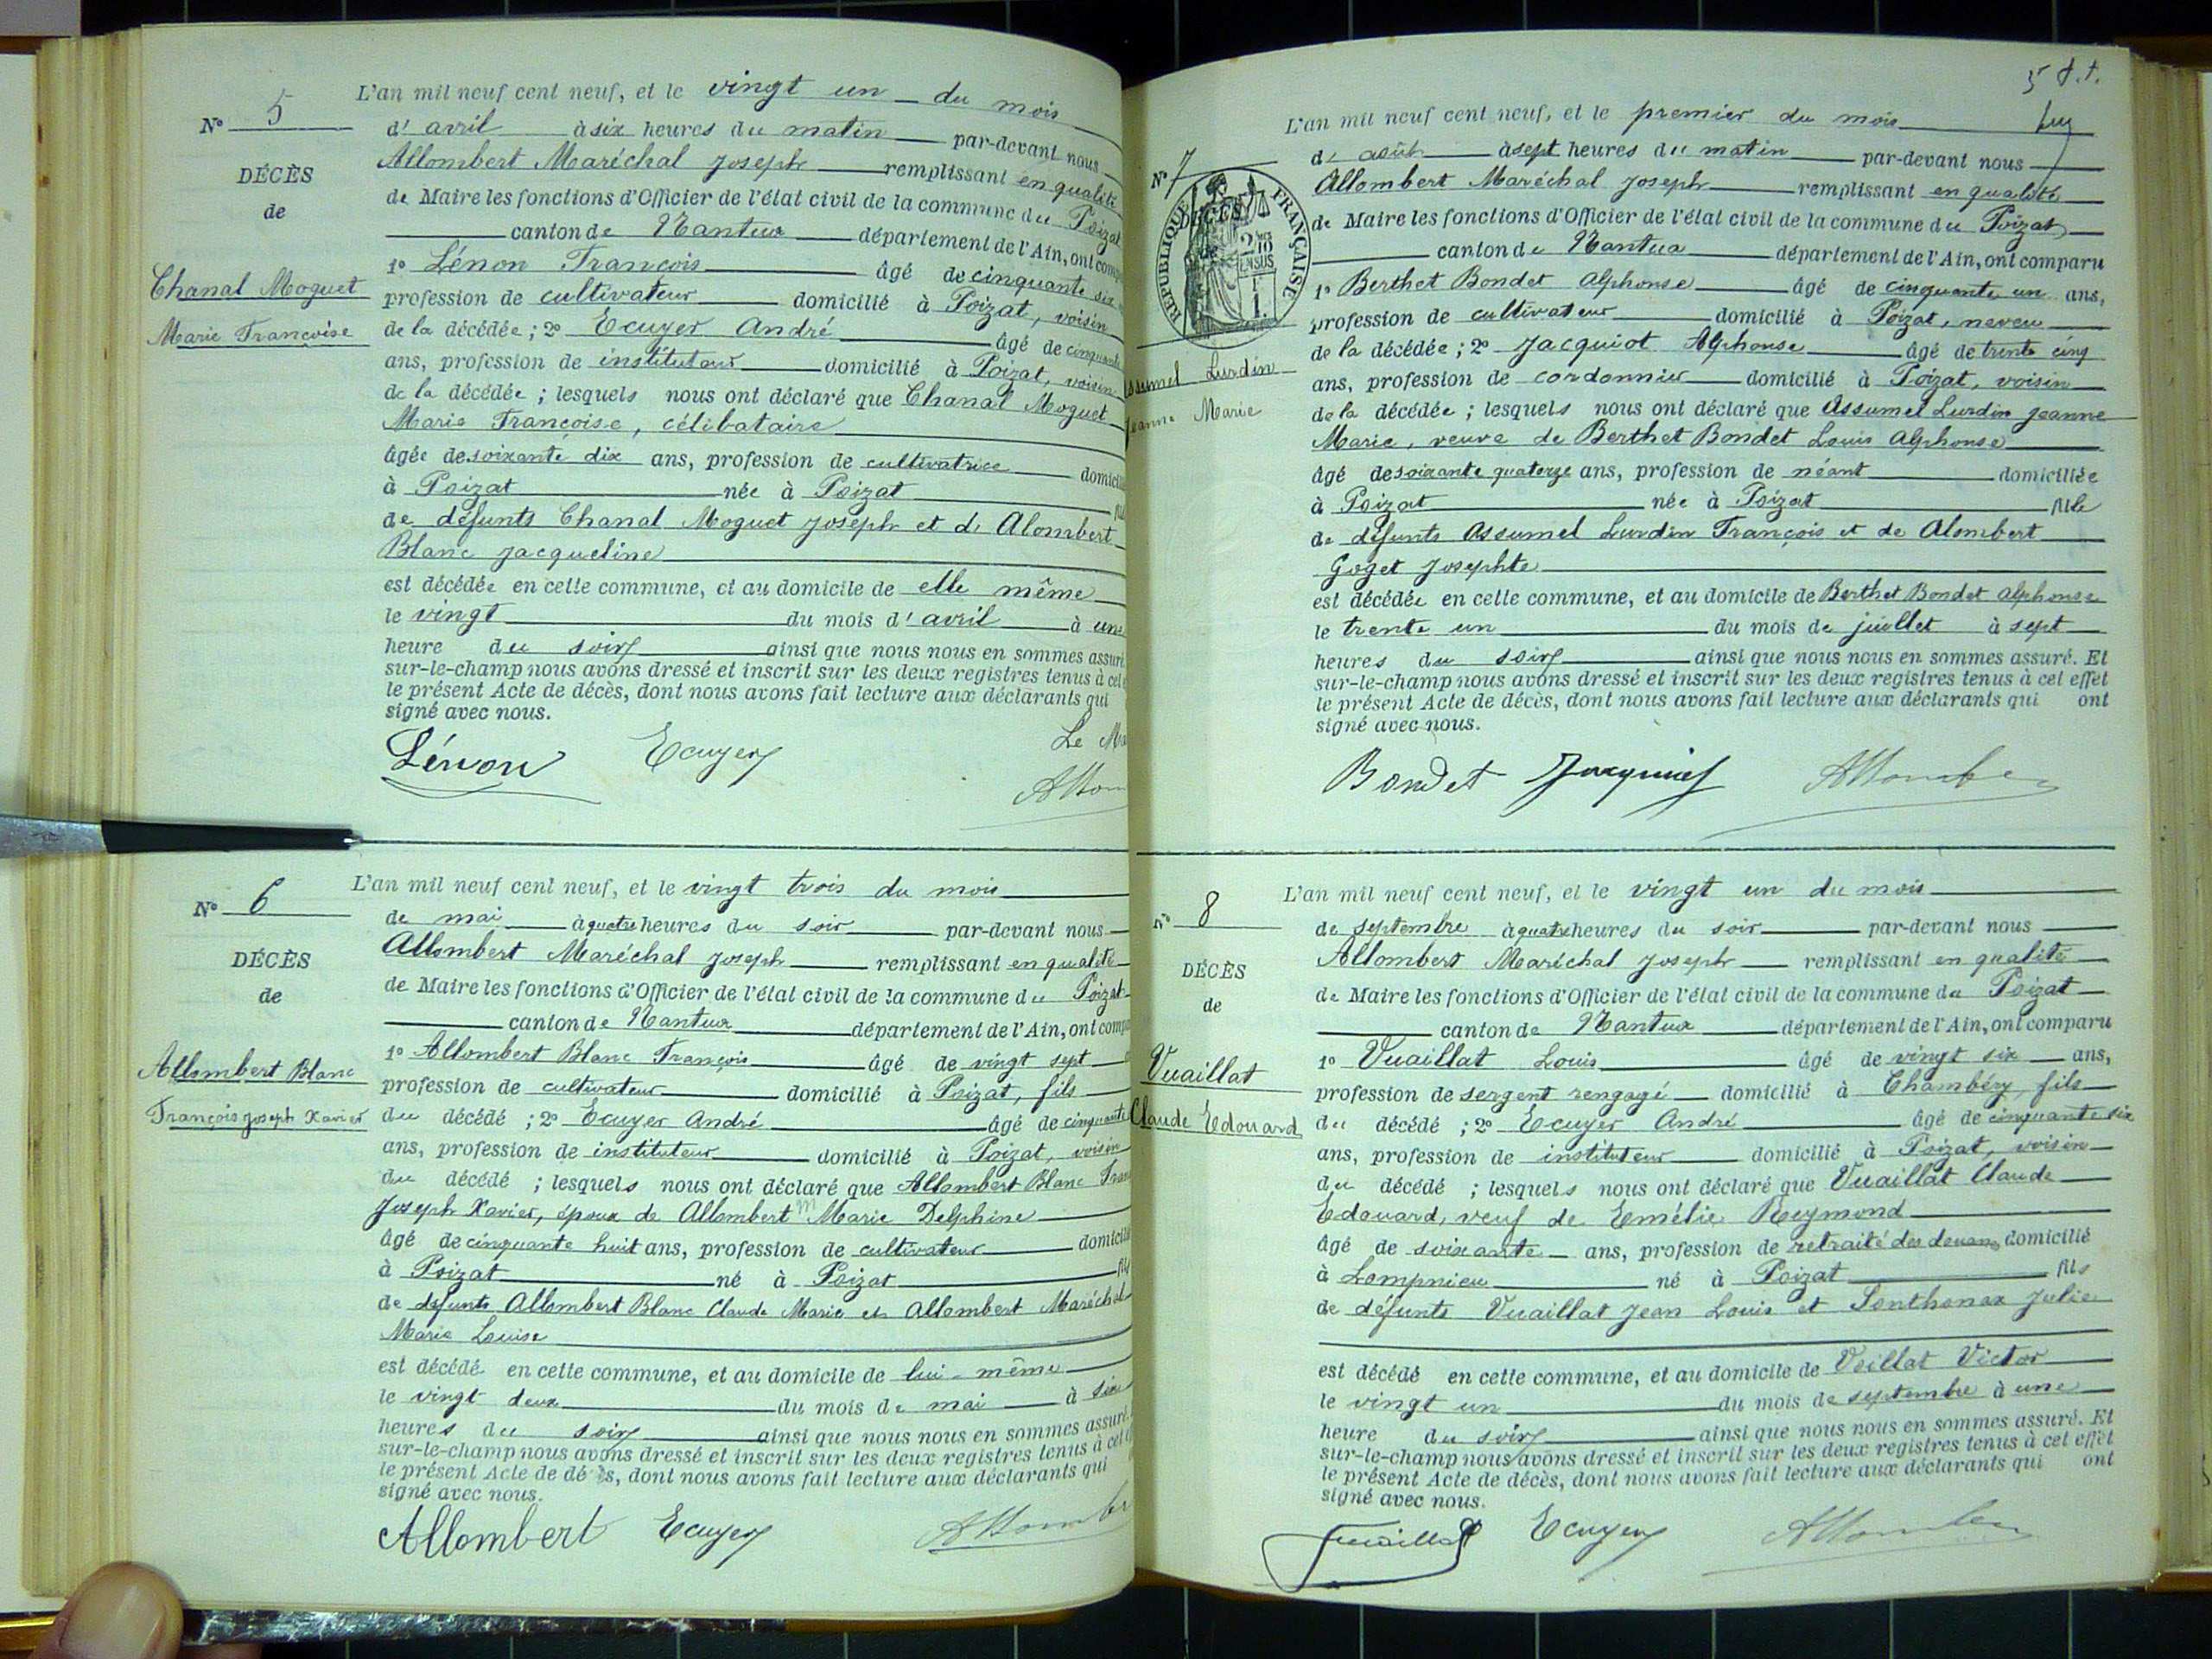 N° 5
DÉCÈS
de
Chanal Moguet
Marie Françoise
L'an mil neuf cent neuf, et le vingt un du mois
d'avril à six heures du matin par-devant nous
Allombert Maréchal Joseph remplissant en qualité
de Maire les fonctions d'Officier de l'état civil de la commune du Poizat
canton de Nantua département de l'Ain, ont comp
1° Lénon François âgé de cinquante six
profession de cultivateur domicilié à Poizat, voisin
de la décédée ; 2° Ecuyer André âgé de cinquante
ans, profession de instituteur domicilié à Poizat, voisin
de la décédée ; lesquels nous ont déclaré que Chanal Moguet
Marie Françoise, célibataire
âgée de soixante dix ans, profession de cultivatrice domicil
à Poizat née à Poizat fil
de défunts Chanal Moguet Joseph et de Alombert
Blanc Jacqueline
est décédée en cette commune, et au domicile de elle même
le vingt du mois d'avril à une
heure du soir ainsi que nous nous en sommes assuré
sur-le-champ nous avons dressé et inscrit sur les deux registres tenus à cet
le présent Acte de décès, dont nous avons fait lecture aux déclarants qui
signé avec nous.
Lénon Ecuyer Le Ma
Allom
N° 6
DÉCÈS
de
Allombert Blanc
François Joseph Xavier
L'an mil neuf cent neuf, et le vingt trois du mois
de mai à quatre heures du soir par-devant nous
Allombert Maréchal Joseph remplissant en qualité
de Maire les fonctions d'Officier de l'état civil de la commune du Poizat
canton de Nantua département de l'Ain, ont compa
1° Allombert Blanc François âgé de vingt sept
profession de cultivateur domicilié à Poizat, fils
du décédé ; 2° Ecuyer André âgé de cinquante
ans, profession de instituteur domicilié à Poizat, voisin
du décédé ; lesquels nous ont déclaré que Allombert Blanc Fran
Joseph Xavier, époux de Allombert Marie Delphine
âgé de cinquante huit ans, profession de cultivateur domicili
à Poizat né à Poizat fils
de défunts Allombert Blanc Claude Marie et Allombert Maréchal
Marie Louise
est décédé en cette commune, et au domicile de lui-même
le vingt deux du mois de mai à six
heures du soir ainsi que nous nous en sommes assuré.
sur-le-champ nous avons dressé et inscrit sur les deux registres tenus à cet
le présent Acte de dé ès, dont nous avons fait lecture aux déclarants qui
signé avec nous.
Allombert Ecuyer Allomber
5
N° 7
DÉCÈS
de
RÉPUBLIQUE FRANÇAISE
2/10 EN SUS
ssumel Lurdin
Jeanne Marie
L'an mil neuf cent neuf, et le premier du mois
d'août à sept heures du matin par-devant nous
Allombert Maréchal Joseph remplissant en qualité
de Maire les fonctions d'Officier de l'état civil de la commune du Poizat
canton de Nantua département de l'Ain, ont comparu
1° Berthet Bondet Alphonse âgé de cinquante un ans,
profession de cultivateur domicilié à Poizat, neveu
de la décédée ; 2° Jacquiot Alphonse âgé de trente cinq
ans, profession de cordonnier domicilié à Poizat, voisin
de la décédée ; lesquels nous ont déclaré que Assumel Lurdin Jeanne
Marie, veuve de Berthet Bondet Louis Alphonse
âgé de soixante quatorze ans, profession de néant domiciliée
à Poizat née à Poizat fille
de défunts Assumel Lurdin François et de Alombert
Goget Josephte
est décédée en cette commune, et au domicile de Berthet Bondet Alphonse
le trente un du mois de juillet à sept
heures du soir ainsi que nous nous en sommes assuré. Et
sur-le-champ nous avons dressé et inscrit sur les deux registres tenus à cet effet
le présent Acte de décès, dont nous avons fait lecture aux déclarants qui ont
signé avec nous.
Bondet Jacquiot Allomber
N° 8
DÉCÈS
de
Vuaillat
Claude Edouard
L'an mil neuf cent neuf, et le vingt un du mois
de septembre à quatre heures du soir par-devant nous
Allombert Maréchal Joseph remplissant en qualité
de Maire les fonctions d'Officier de l'état civil de la commune du Poizat
canton de Nantua département de l'Ain, ont comparu
1° Vuaillat Louis âgé de vingt six ans,
profession de sergent rengagé domicilié à Chambéry, fils
du décédé ; 2° Ecuyer André âgé de cinquante six
ans, profession de instituteur domicilié à Poizat, voisin
du décédé ; lesquels nous ont déclaré que Vuaillat Claude
Edouard, veuf de Emélie Reymond
âgé de soixante ans, profession de retraité des douanes domicilié
à Lompnieu né à Poizat fils
de défunts Vuaillat Jean Louis et Sonthonax Julie
est décédé en cette commune, et au domicile de Voillat Victor
le vingt un du mois de septembre à une
heure du soir ainsi que nous nous en sommes assuré. Et
sur-le-champ nous avons dressé et inscrit sur les deux registres tenus à cet effet
le présent Acte de décès, dont nous avons fait lecture aux déclarants qui ont
signé avec nous.
Vuaillat Ecuyer Allomber